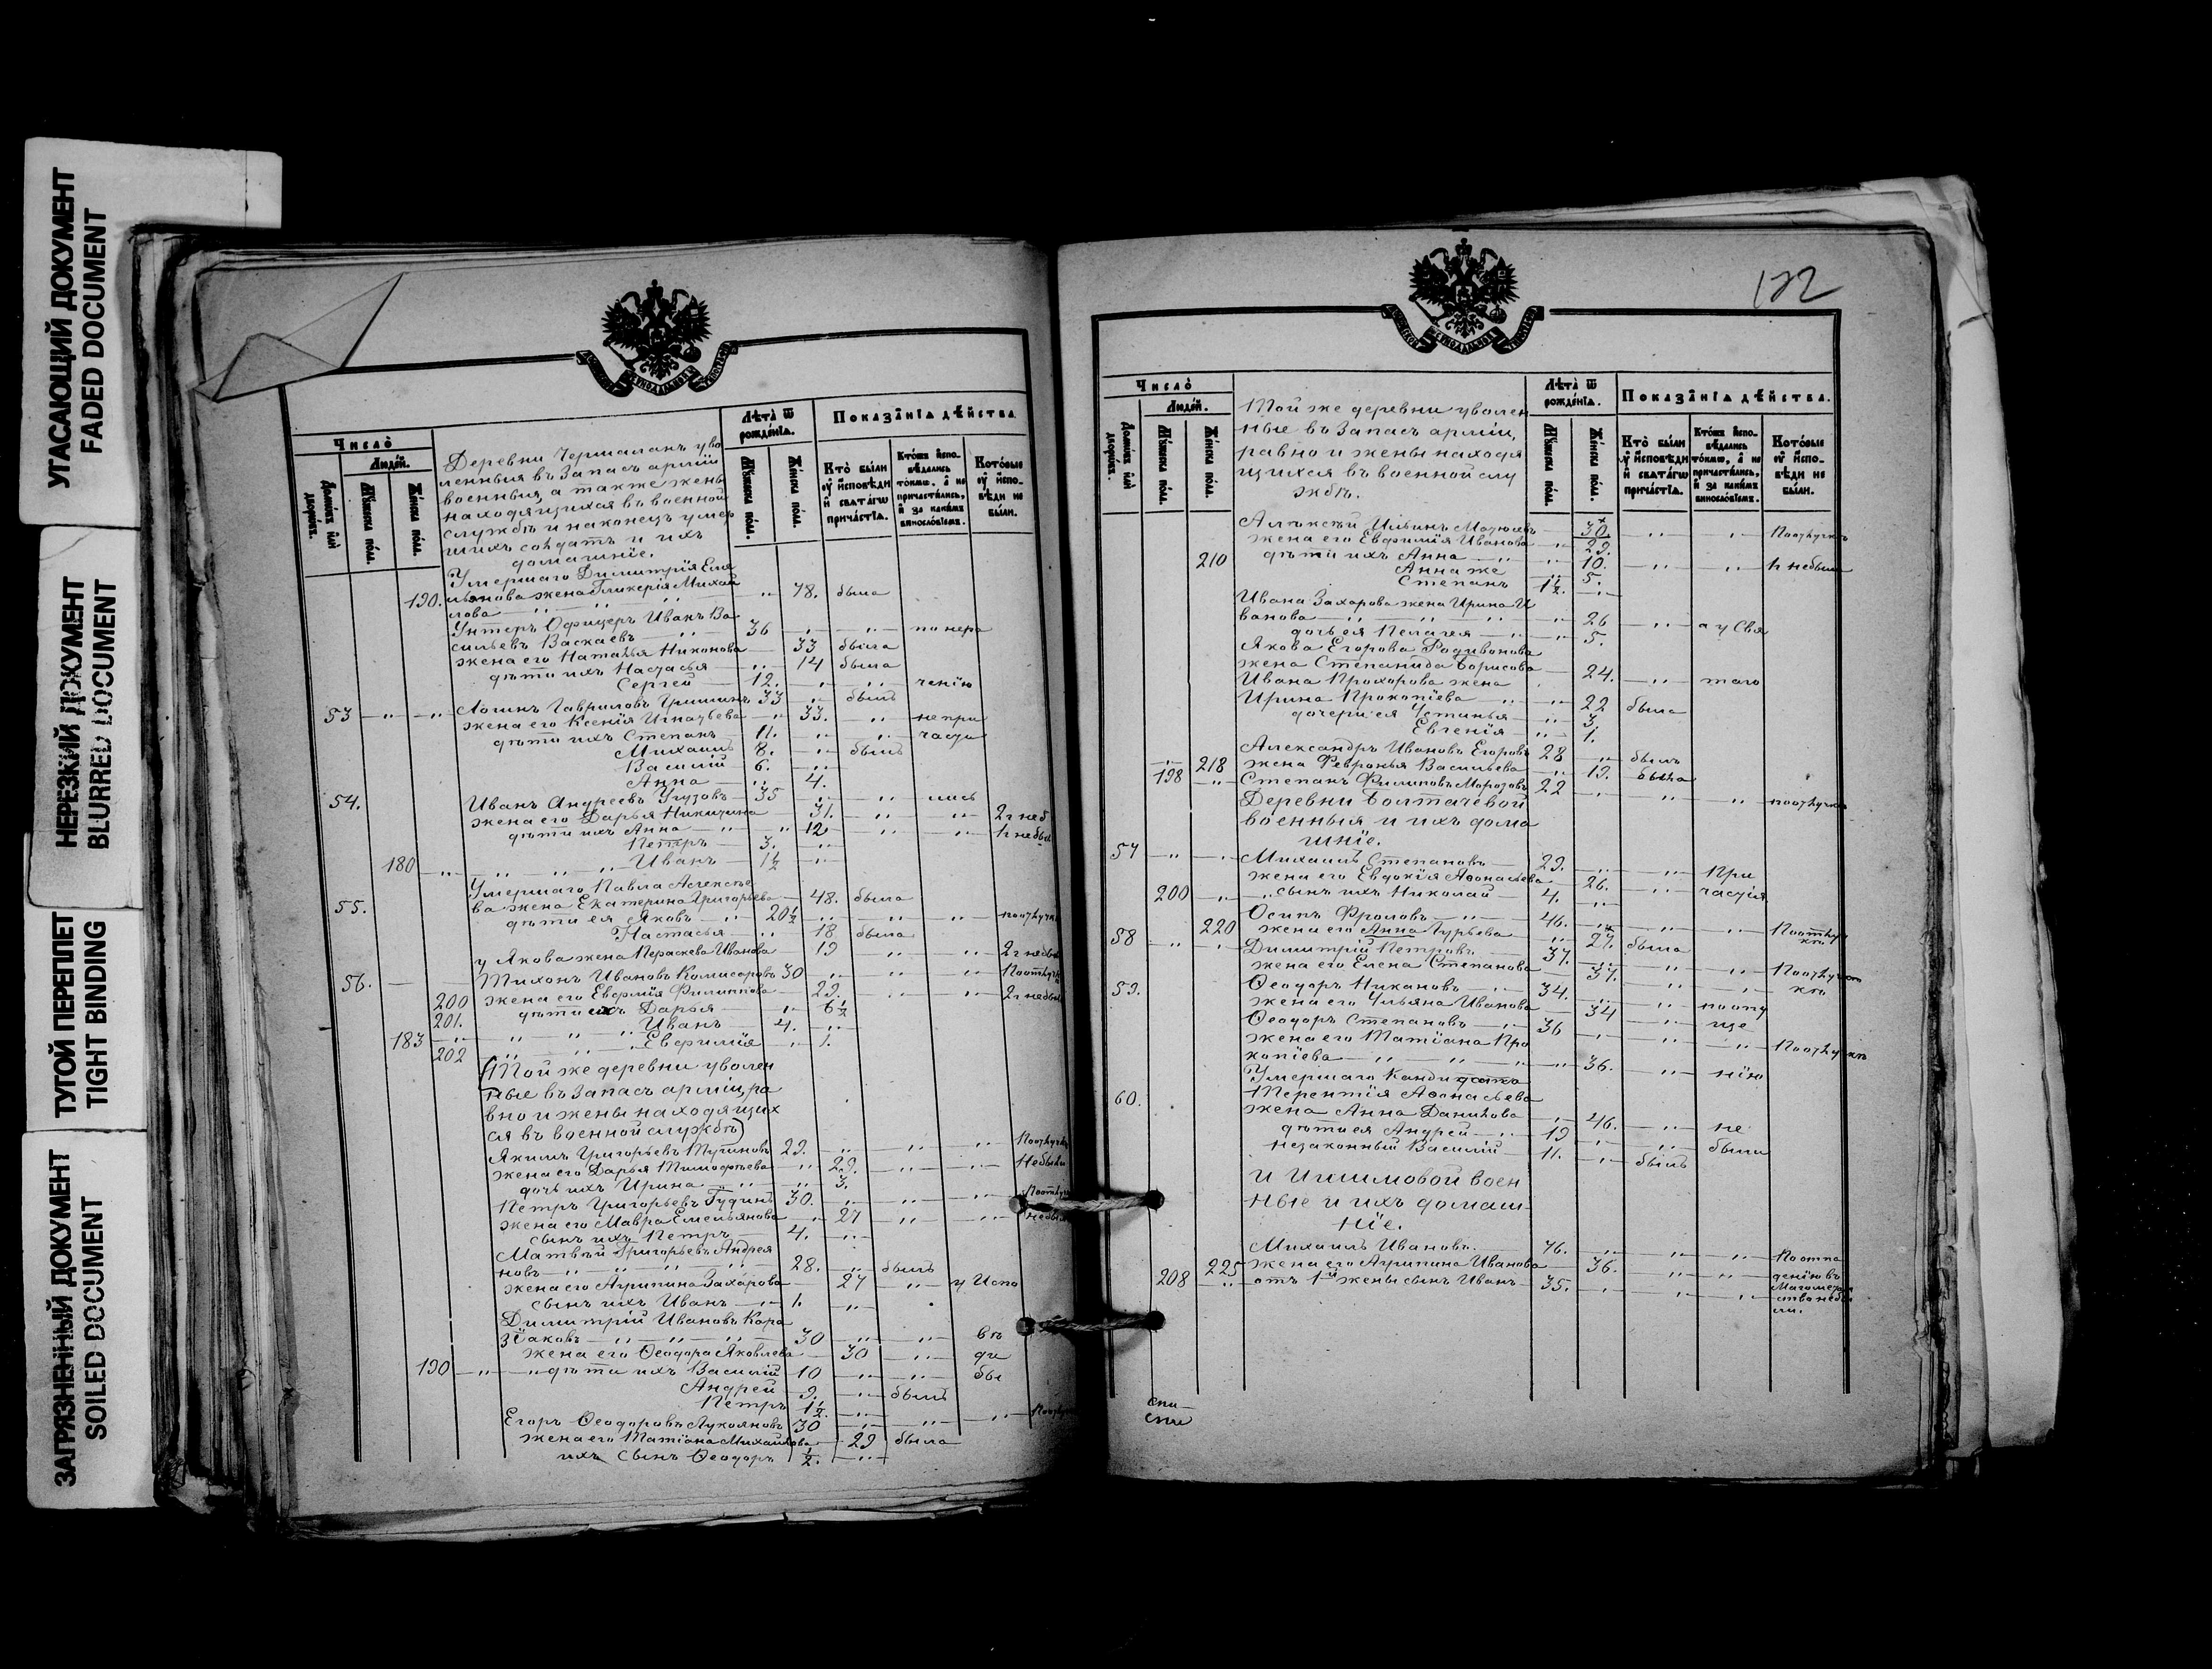 УГАСАЮЩИЙ ДОКУМЕНТ
FADED DOCUMENT
НЕРЕЗКИЙ ДОКУМЕНТ
BLURRED DOCUMENT
ТУГОЙ ПЕРЕПЛЕТ
TIGHT BINDING
ЗАГРЯЗНЕННЫЙ ДОКУМЕНТ
SOILED DOCUMENT
Число̀
Людей.
Домовъ или дворовъ.
Мужеска полл.
Женска полл.
Деревни Чермаланъ уво
ленныя въ Запасъ армiи
военныя, а также жены
находящихся въ военной
службѣ и наконецъ умер
шихъ солдатъ и ихъ
домашнiе.
Лѣта̀ ѿ рожде́нїѧ.
Показа̑нїѧ дѣ́йства.
Кто̀ бы́ли ᲂу҆ и҆сповѣди и҆ свѧта́гѡ прича́стїѧ.
Кто́же и҆спо-вѣдались то́кмѡ, а҆ не причасти́лись, и҆ за каки́мъ винослѡ́вїемъ.
Кото́рые ᲂу҆ и҆спо-вѣди не бы́ли.
Умершаго Димитрiя Емел
190. ьянова жена Гликерiя Михай
лова 78. была
Унтеръ Офицеръ Иванъ Ва
сильевъ Васкаевъ 36 по нера
жена его Наталья Никонова 33 была
дѣти ихъ Настасья 14 была
Сергей 12. ченiю
53 Логинъ Гавриловъ Гришинъ 33 былъ
жена его Ксенiя Игнатьева 33. не при
дѣти ихъ Степанъ 11. части
Михаилъ 8. былъ
Василiй 6.
Анна 4.
54. Иванъ Андреевъ Угузовъ 35 лись
жена его Дарья Никитина 31. 2 г неб
дѣти ихъ Анна 12 1 г небы
Петръ 3.
180 Иванъ 1½
Умершаго Павла Алексѣе
55. ва жена Екатерина Григорьева 48. была
дѣти ея Яковъ 20½ поотлучк
Настасья 18 была
у Якова жена Параскева Иванова 19 2 г небы
56. Тихонъ Ивановъ Комисаровъ 30 Поотлуч
200 жена его Евфимiя Филиппова 29. 2 г небы
201. дѣти ихъ Дарья 6½
183 Иванъ 4.
202 Евфимiя 1.
(Той же деревни уволен
ные въ Запасъ армiи, ра
вно и жены находящих
ся въ военной службѣ)
Якимъ Григорьевъ Тугиновъ 29. Поотлучк
жена его Дарья Тимофѣева 29. Небыли
дочь ихъ Ирина 3.
Петръ Григорьевъ Гудинъ 30. Поотлуч
жена его Мавра Емельянова 27 небыл
сынъ ихъ Петръ 4.
Матвѣй Григорьевъ Андрея
новъ 28. былъ
жена его Агрипина Захарова 27 у Испо
сынъ ихъ Иванъ 1.
Димитрiй Ивановъ Кара
зiаковъ 30 вѣ
жена его Ѳеодора Яковлева 30 ди
190 дѣти ихъ Василiй 10 бы
Андрей 9. былъ
Петръ 1½.
Егоръ Ѳеодоровъ Лукояновъ 30 Поотлуч
жена его Татiана Михайлова 29 была
ихъ сынъ Ѳеодоръ ½.
122
Число̀
Людей.
Домовъ или дворовъ.
Мужеска полл.
Женска полл.
Той же деревни уволен
ные въ Запасъ армiи,
равно и жены находя
щихся въ военной слу
жбѣ.
Лѣта̀ ѿ рожде́нїѧ.
Показа̑нїѧ дѣ́йства.
Кто̀ бы́ли ᲂу҆ и҆сповѣди и҆ свѧта́гѡ прича́стїѧ.
Кто́же и҆спо-вѣдались то́кмѡ, а҆ не причасти́лись, и҆ за каки́мъ винослѡ́вїемъ.
Кото́рые ᲂу҆ и҆спо-вѣди не бы́ли.
Алѣксѣй Ильинъ 30. Поотлучкѣ
жена его Евфимiя Иванова 29.
210 дѣти ихъ Анна 10. 1 г небыли
Анна же 5.
Степанъ 1½.
Ивана Захарова жена Ирина И
ванова 26 а у Свя
дочь ея Пелагея 5.
Якова Егорова Родивонова
жена Степанида Борисова 24. таго
Ивана Прохорова жена
Ирина Прокопiева 22 была
дочери ея Устинья 3.
Евгенiя 1.
Александръ Ивановъ Егоровъ 28 былъ
218 жена Февронья Васильева 19. была
198 Степанъ Филиповъ Морозовъ 22 поотлучкѣ
Деревни Болтачевой
военныя и ихъ дома
шнiе.
57 Михаилъ Степановъ 29. При
жена его Евдокiя Аѳонасьева 26. частiя
200 сынъ ихъ Николай 4.
Осипъ Фроловъ 46. Поотлуч
220 жена его Анна Гурьева 27. была кѣ
58 Димитрiй Петровъ 37. Поотлуч
жена его Елена Степанова 37. кѣ
59. Ѳеодоръ Никановъ 34. по опу
жена его Ульяна Иванова 34 ще
Ѳеодоръ Степановъ 36 Поотлучкѣ
жена его Татiана Про
копiева 36. нiю
Умершаго Кандидата
60. Терентiя Аѳонасьева
жена Анна Данилова 46. не
дѣти ея Андрей 19 были
незаконный Василiй 11. былъ
и Ишимовой воен
ные и ихъ домаш
нiе.
Михаилъ Ивановъ. 76. По отпа
225 жена его Агрипина Иванова 36. денiю въ
208 отъ 1й жены сынъ Иванъ 35. Магомедан
ство небы
ли.